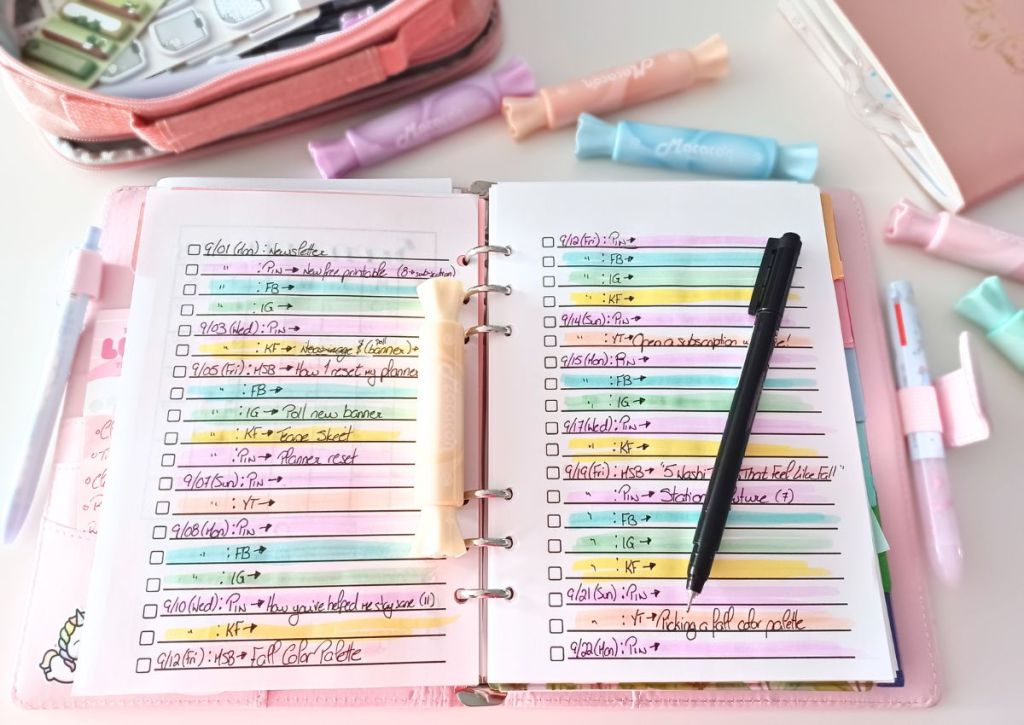 9/01(Mon): Newsletter
" : PIN → New free printable (B→subsection)
" : FB
" : IG →
9/03(Wed): PIN →
" : KF → (poll banner) →
9/05(Fri): MSB → How I reset my planner
" : FB
" : IG → Poll new banner
" : KF → Tease Skeet
" : PIN → Planner reset
9/07(Sun): PIN →
" : YT →
9/08(Mon): PIN →
" : FB →
" : IG →
9/10(Wed): PIN → How you've helped me stay sane (11)
" : KF →
9/12(Fri): MSB → Fall Color Palette
9/12(Fri): PIN →
" : FB →
" : IG →
" : KF →
9/14(Sun): PIN →
" : YT → Open a subscription
9/15(Mon): PIN →
" : FB →
" : IG →
9/17(Wed): PIN →
" : KF →
9/19(Fri): MSB → "5 Washi That Feel Like Fall"
" : PIN → (7)
" : FB →
" : IG →
" : KF →
9/21(Sun): PIN →
" : YT → Picking a fall color palette
9/22(Mon): PIN →
Macaron
Macaron
Macaron
Macaron